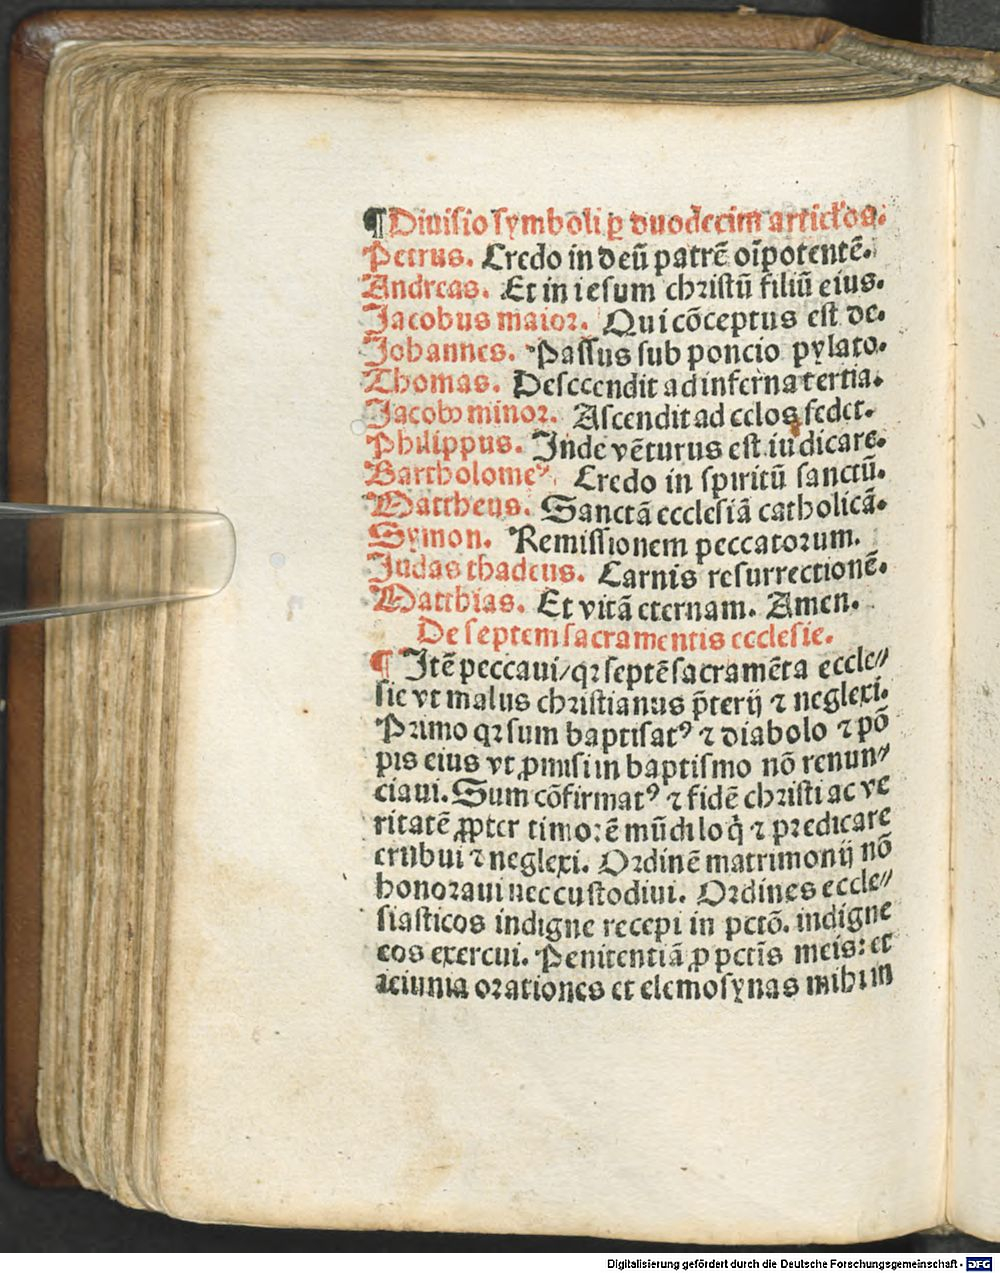 ¶ Diuisio symboli ꝑ duodecim articłos.
Petrus. Credo in deū patrē oīpotentē.
Andreas. Et in iesum christū filiū eius.
Jacobus maior. Qui cōceptus est de.
Johannes. Passus sub poncio pylato.
Thomas. Descendit ad inferna tertia.
Jacobꝰ minor. Ascendit ad celos sedet.
Philippus. Inde vēturus est iudicare.
Bartholomeꝰ. Credo in spiritū sanctū.
Mattheus. Sanctā ecclesiā catholicā.
Symon. Remissionem peccatorum.
Judas thadeus. Carnis resurrectionē.
Matthias. Et vitā eternam. Amen.
De septem sacramentis ecclesie.
¶ Itē peccaui/ qꝛ septē sacramēta eccle⸗
sie vt malus christianus p̄terij ⁊ neglexi.
Primo qꝛ sum baptisatꝰ ⁊ diabolo ⁊ pō
pis eius vt ꝓmisi in baptismo nō renun⸗
ciaui. Sum cōfirmatꝰ ⁊ fidē christi ac ve
ritatē ꝓpter timorē mūdi loq̇ ⁊ predicare
erubui ⁊ neglexi. Ordinē matrimonij nō
honoraui nec custodiui. Ordines eccle⸗
siasticos indigne recepi in pctō. indigne
eos exercui. Penitentiā ꝓ pctīs meis: et
ieiunia orationes et elemosynas mihi in
Digitalisierung gefördert durch die Deutsche Forschungsgemeinschaft - DFG